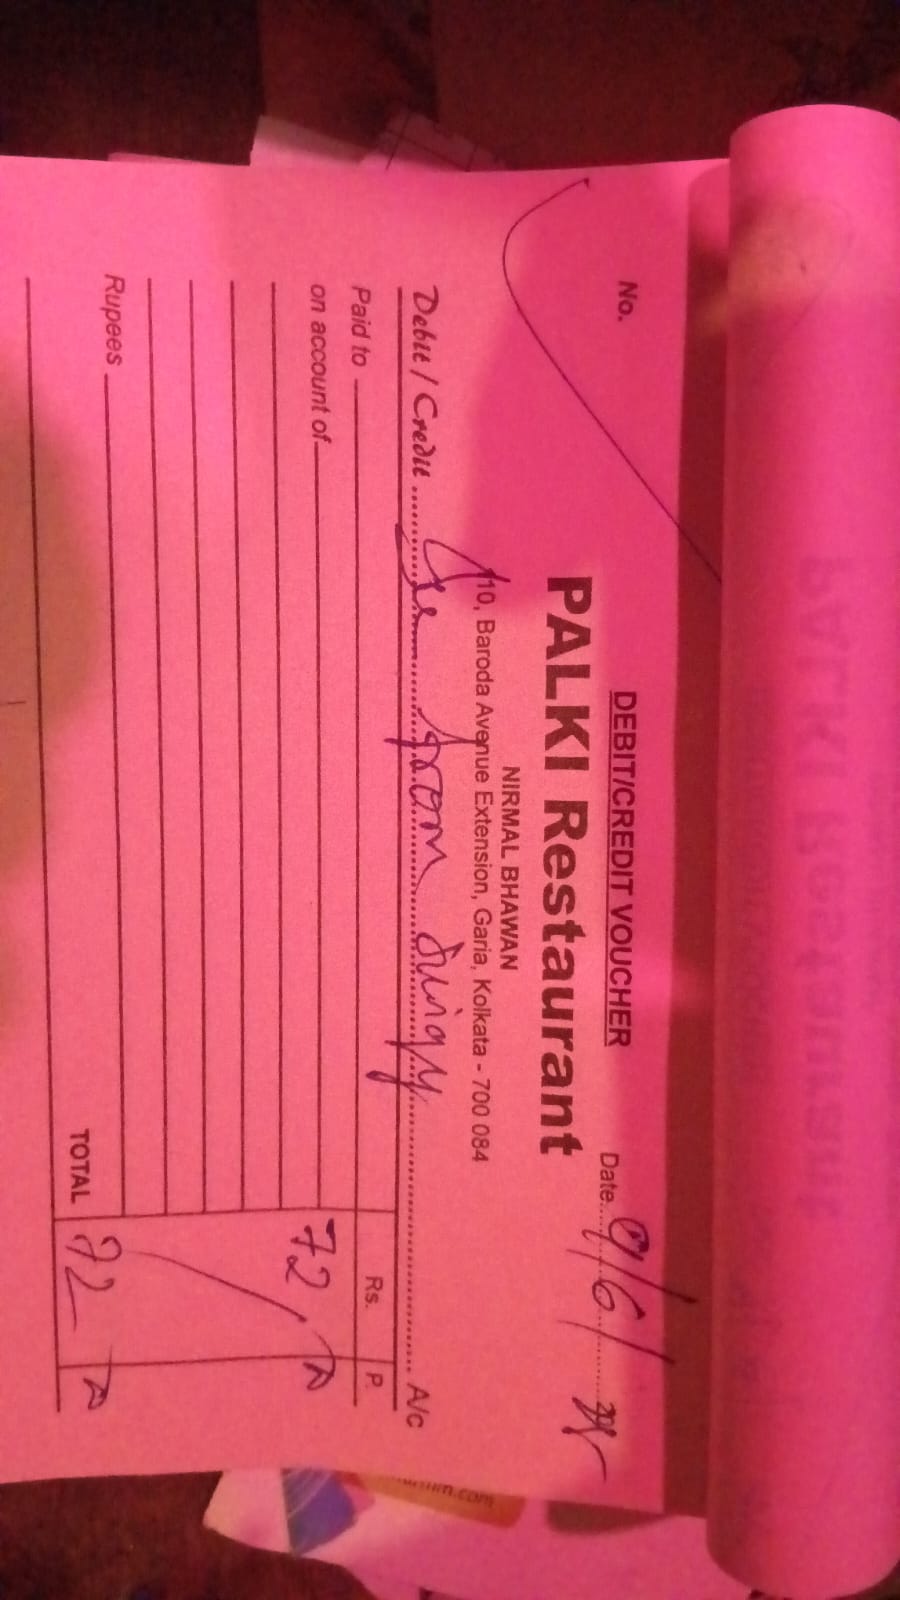 DEBIT/CREDIT VOUCHER
No. Date 9/6/
PALKI Restaurant
NIRMAL BHAWAN
110, Baroda Avenue Extension, Garia, Kolkata - 700 084
Debit / Credit from A/c
Paid to Rs. P.
on account of 72
Rupees
TOTAL 72